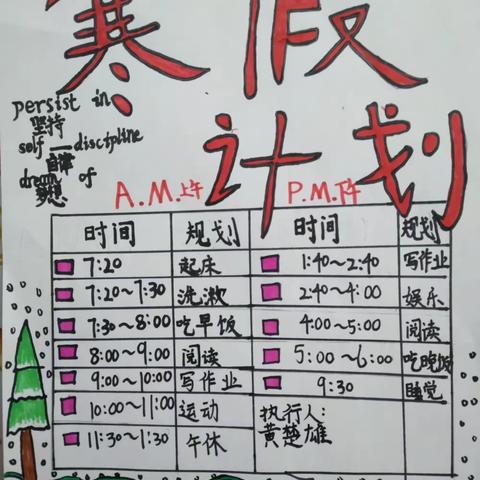 寒假
计划
persist in
坚持
self — discipline
自律
dream of
梦想
A.M.上午
P.M.下午
时间 规划 时间 规划
7:20 起床 1:40~2:40 写作业
7:20~7:30 洗漱 2:40~4:00 娱乐
7:30~8:00 吃早饭 4:00~5:00 阅读
8:00~9:00 阅读 5:00~6:00 吃晚饭
9:00~10:00 写作业 9:30 睡觉
10:00~11:00 运动 执行人:
黄楚雄
11:30~1:30 午休